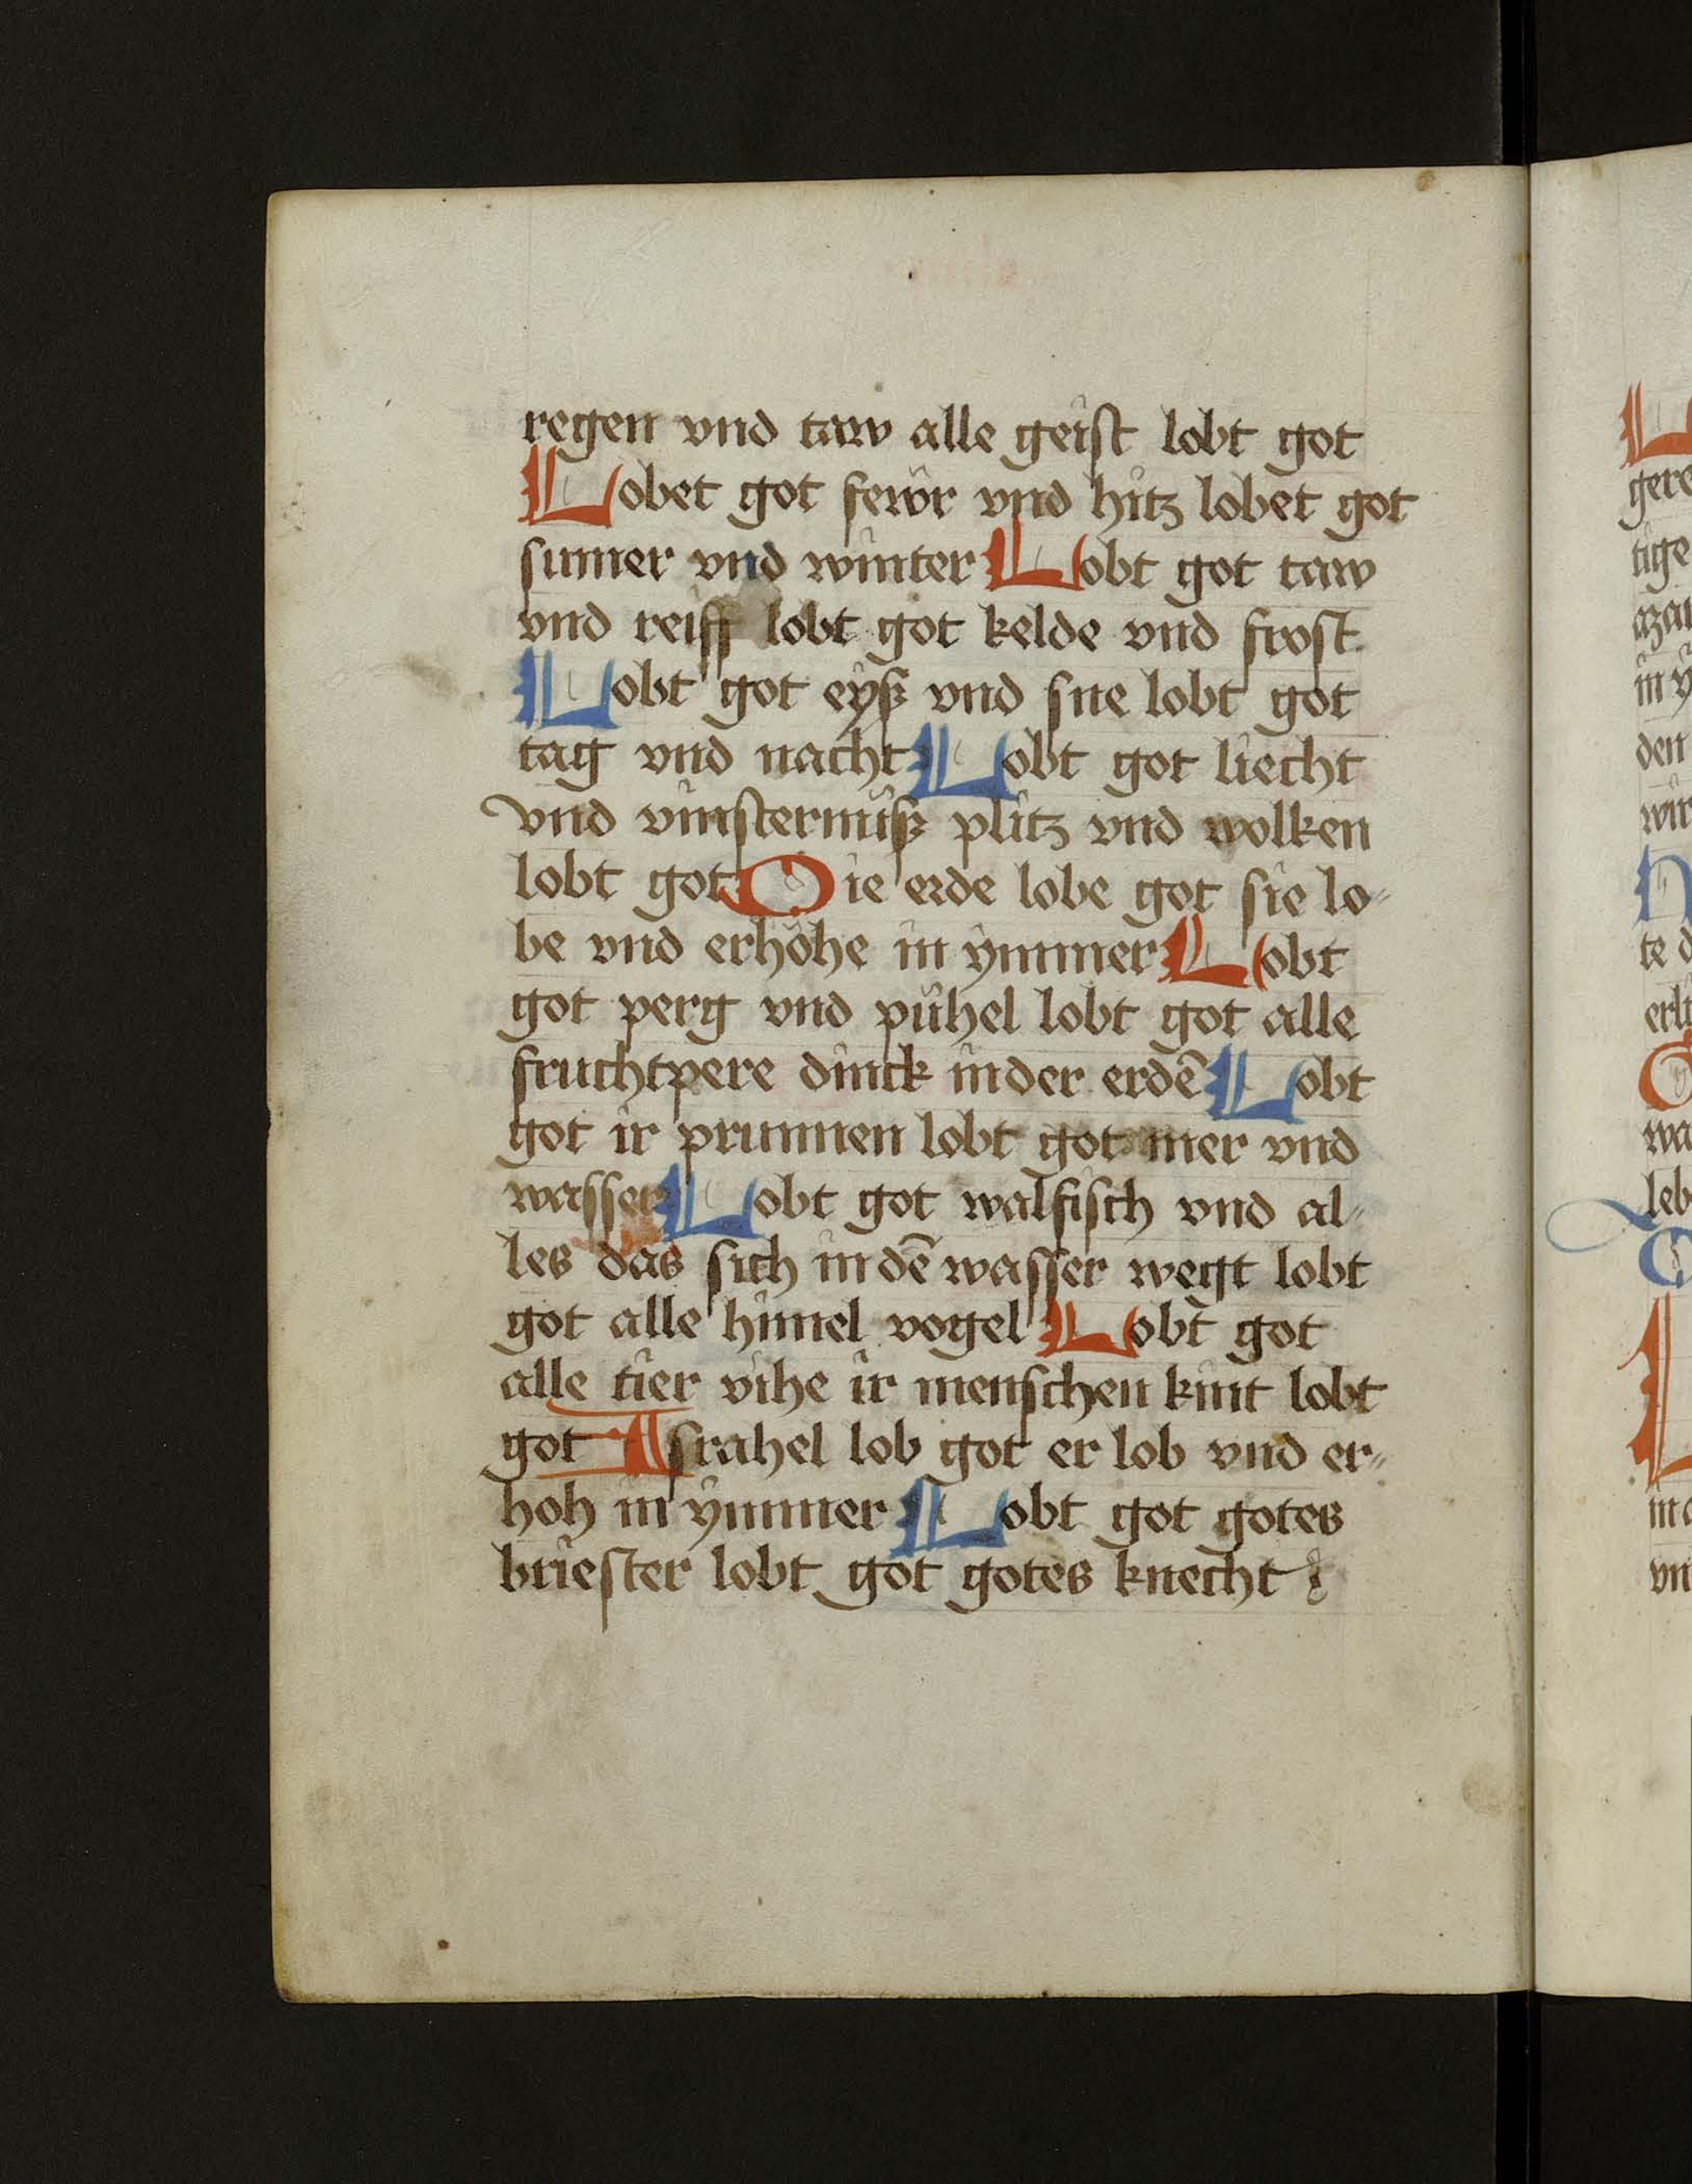 regen vnd taw alle geist lobt got
Lobet got fewr vnd hitz lobet got
sumer vnd winter Lobt got taw
vnd reiff lobt got kelde vnd frost
Lobt got eyß vnd sne lobt got
tag vnd nacht Lobt got liecht
vnd vinsternüß plitz vnd wolken
lobt got Die erde lobe got sie lo⸗
be vnd erhöhe in ymmer Lobt
got perg vnd pühel lobt got alle
fruchtpere dinck in der erdē Lobt
got ir prunnen lobt got mer vnd
wasser Lobt got walfisch vnd al⸗
les das sich in dē wasser wegt lobt
got alle himel vogel Lobt got
alle tier vihe ir menschen kint lobt
got Israhel lob got er lob vnd er⸗
hoh in ymmer Lobt got gotes
briester lobt got gotes knecht
gere
tige
aza
in y
den
wir
te d
erlö
wa
leb
in d
vn